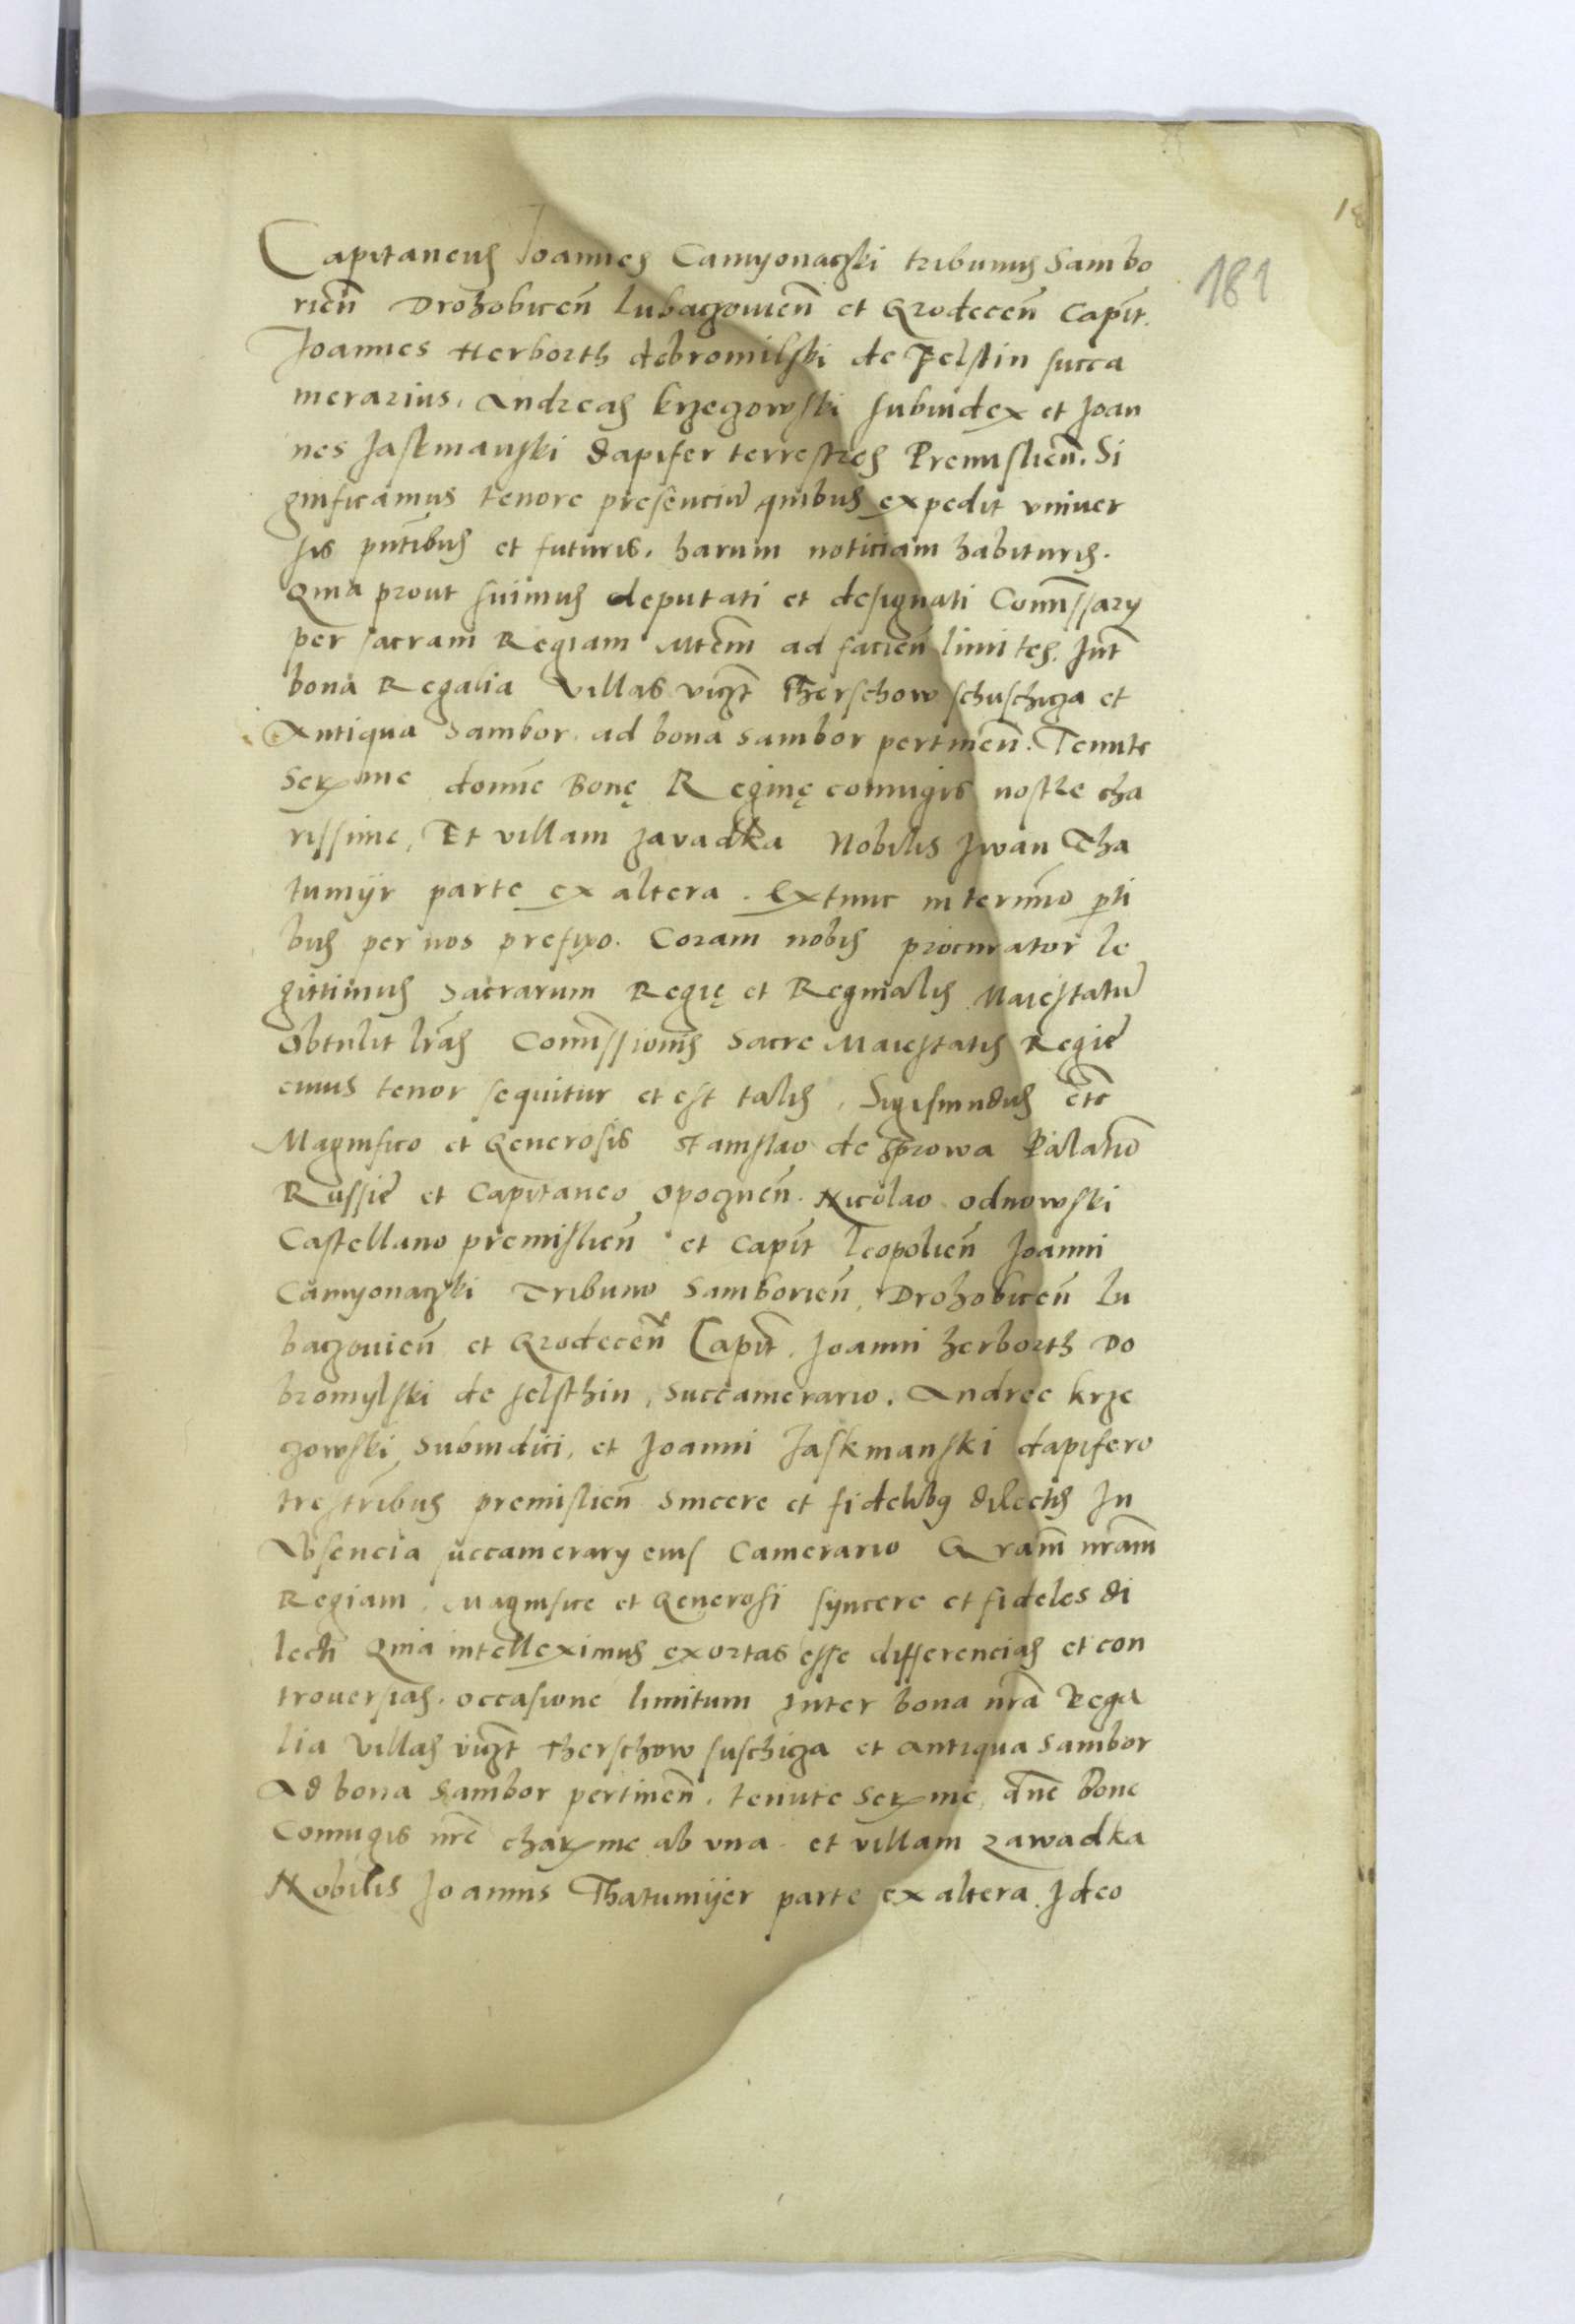 18
181
Capitaneus Joannes Camyonaczki tribunus Sambo
rień Drohobiceń lubaczowień et Grodeceń Capit.
Joannes Herborth dobromilski de Felstin succa
merarius, Andreas krzeczowski subiudex et Joan
nes Jaskmanski dapifer terrestres Premislień. Si
gnificamus tenore presenciū quibus expedit vniuer
sis pn̄tibus et futuris, harum noticiam habituris.
Quia prout fuimus deputati et designati Comissary
per sacram Regiam Mtēm ad facień limites. Int̄
bona Regalia villas vigz̄t Therschow schuschicza et
Antiqua Sambor ad bona Sambor pertineń. Tenute
Serme domīe Bonę Reginę coniugis nostre cha
rissime, Et villam zavadka Nobilis Jwan Tha
tumijr parte ex altera. Extunc in termīo pti
bus per nos prefixo. Coram nobis procurator le
gittimus Sacrarum Regię et Reginalis Maiestatū
Obtulit lr̄as Comissionis Sacre Maiestatis Regie
cuius tenor sequitur et est talis. Sigismundus etc̄
Magnifico et Generosis Stanislao de Sprowa Palatino
Russie et Capitaneo opoczneń. Nicolao odnowski
Castellano premislień et Capit leopolień Joanni
Camyonaczki Tribuno Samborień, Drohobiceń lu
baczowień et Grodeceń Capit. Joanni herborth Do
bromylski de felsthin, Succamerario. Andree krze
zowski Subiudici, et Joanni Jaskmanski dapifero
trestribus premislień Sincere et fidelibq dilectis In
Absencia succamerary eius Camerario Gram̄ nram̄
Regiam. Magnifice et Generosi syncere et fideles di
lecti Quia intelleximus exortas esse differencias et con
trouersias. occasione limitum Inter bona nrā Rega
lia villas vigz̄t Therschow suschicza et Antiqua Sambor
Ad bona Sambor pertineń. tenute Serme, dn̄e Bone
Coniugis nrē charme ab vna. et villam zawadka
Nobilis Joannis Thatumijer parte ex altera. Ideo